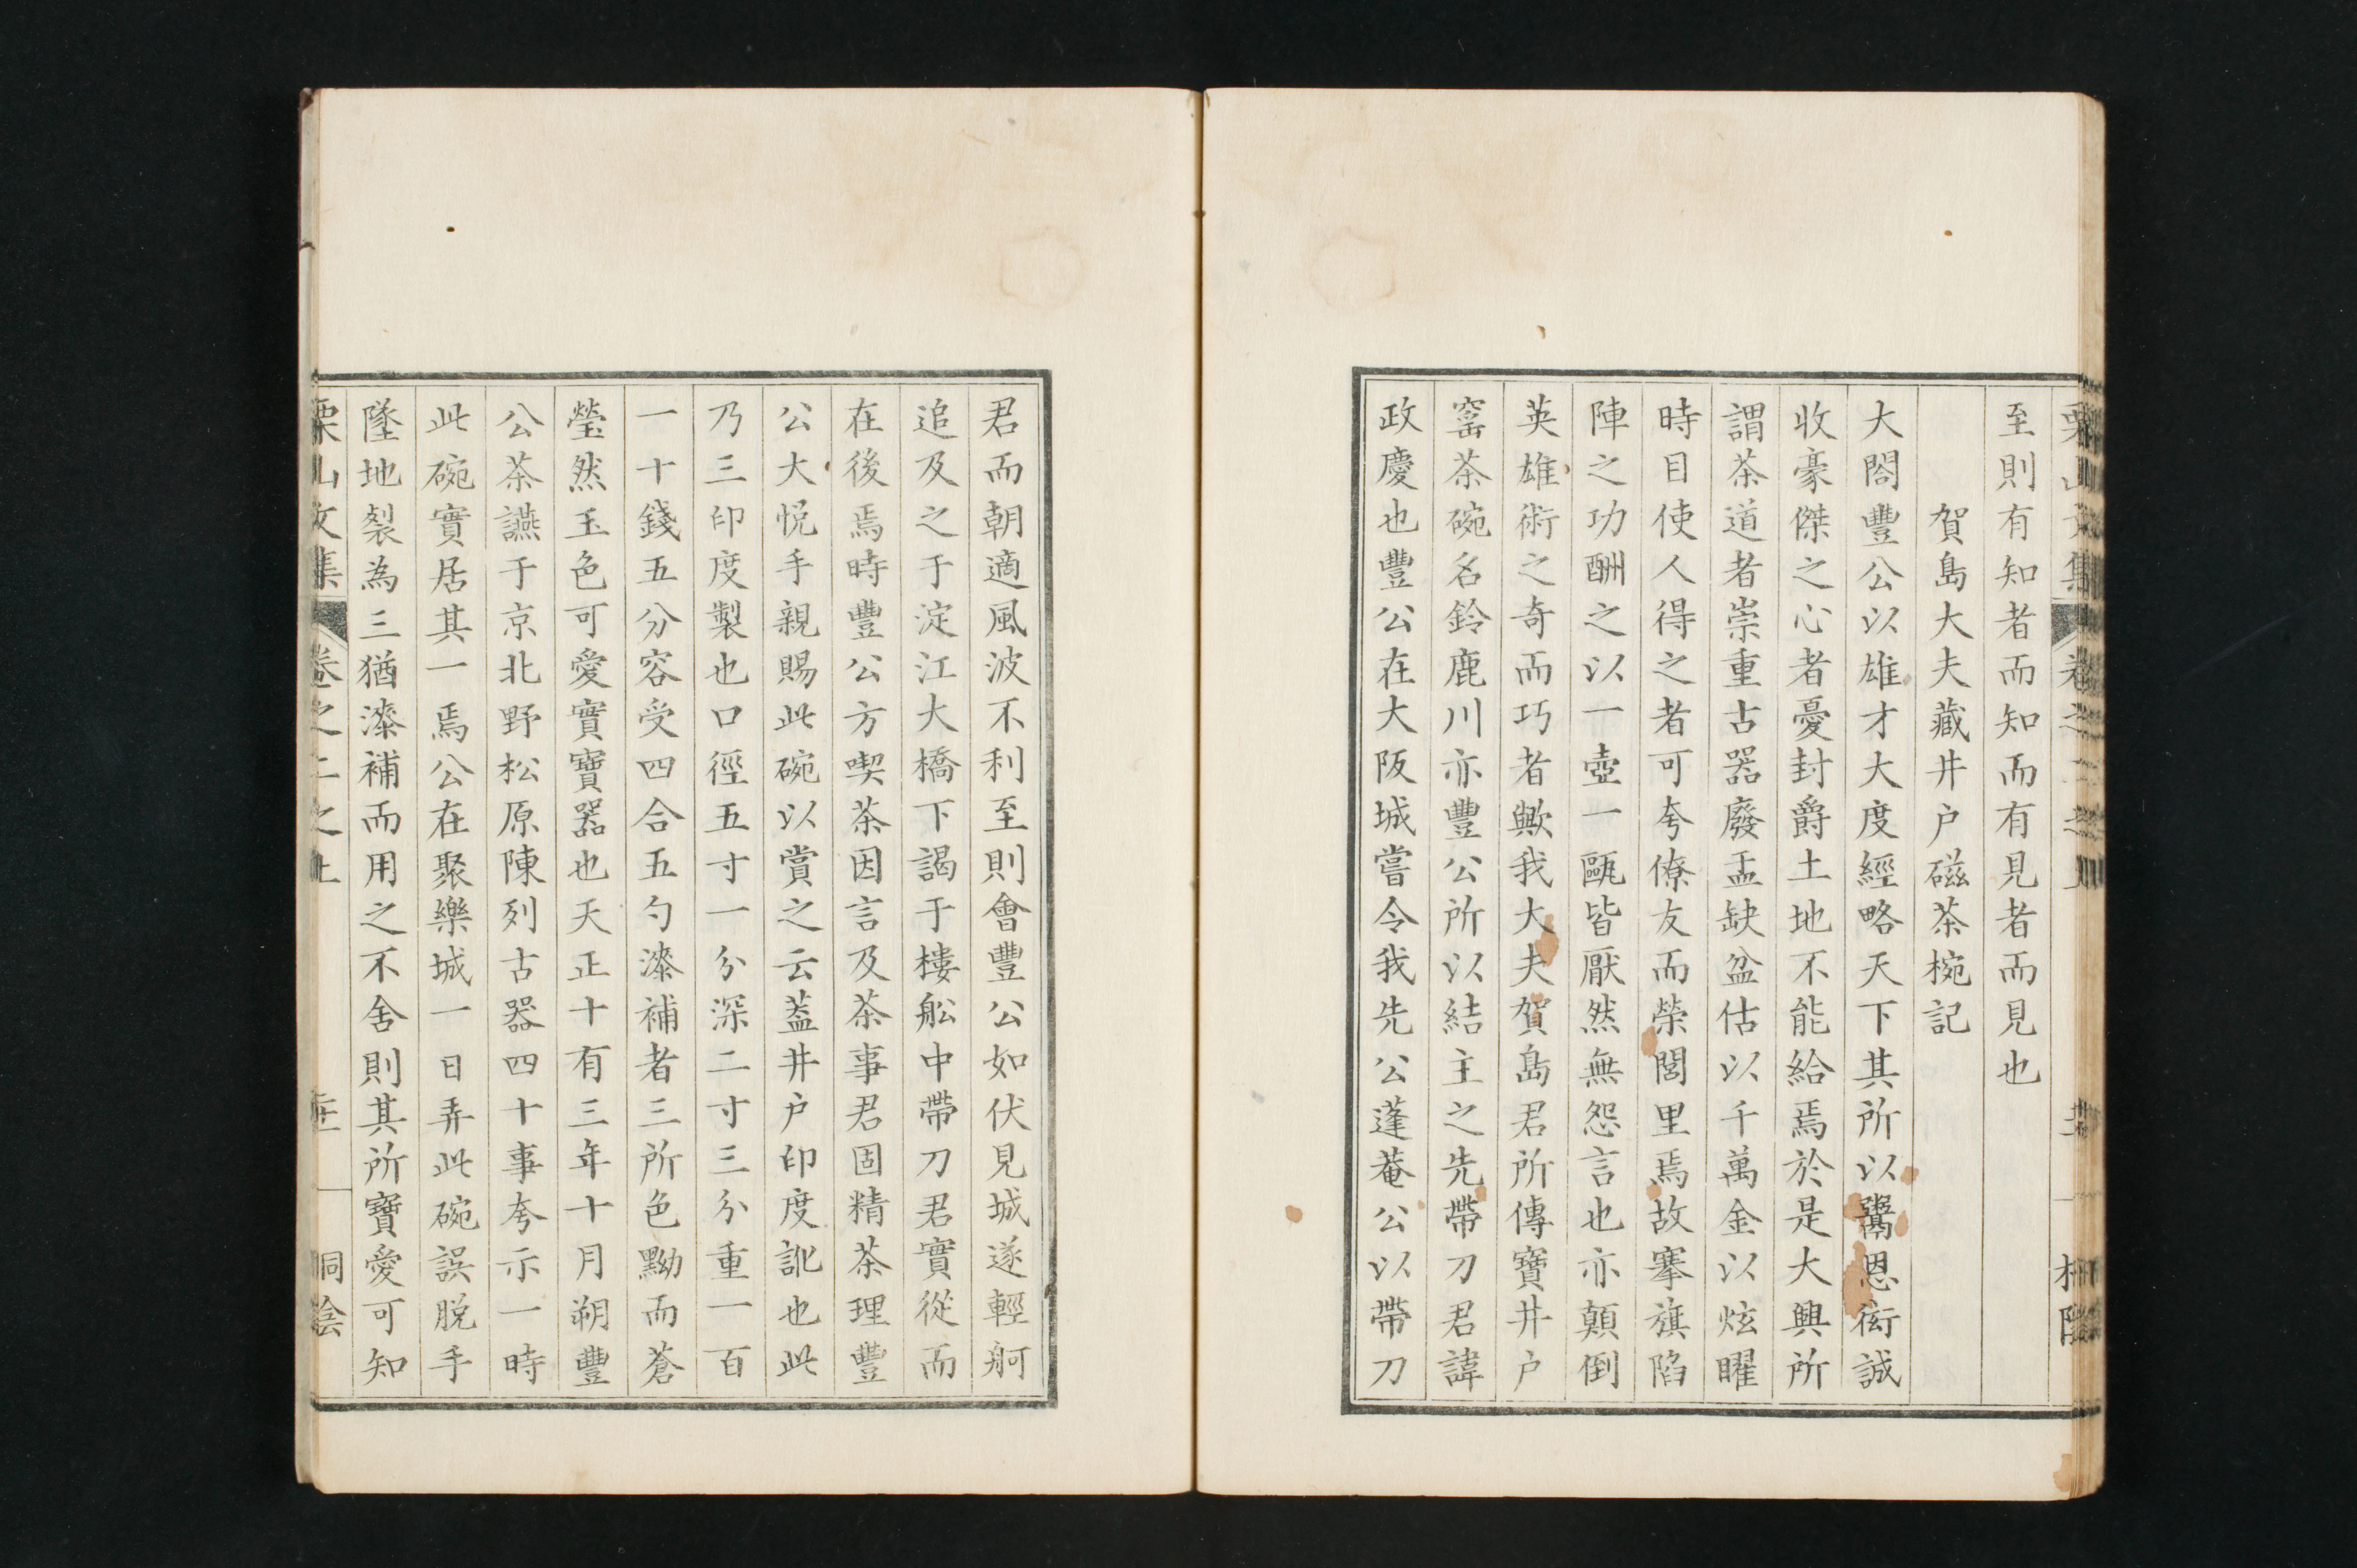 至則有知者而知而有見者而見也
賀島大夫藏井户磁茶椀記
大閤豐公以雄才大度經略天下其所以鬻恩衒誠
收豪傑之心者憂封爵土地不能給焉於是大興所
謂茶道者崇重古器廢盂缺盆估以千萬金以炫曜
時目使人得之者可夸僚友而榮閭里焉故搴旗陷
陣之功酬之以一壺一甌皆厭然無怨言也亦顛倒
英雄術之奇而巧者歟我大夫賀島君所傳寶井户
窰茶碗名鈴鹿川亦豐公所以結主之先帶刀君諱
政慶也豐公在大阪城嘗令我先公蓬菴公以帶刀
君而朝適風波不利至則會豐公如伏見城遂輕舸
追及之于淀江大橋下謁于樓舩中帶刀君實從而
在後焉時豐公方喫茶因言及茶事君固精茶理豐
公大悦手親賜此碗以賞之云蓋井户印度訛也此
乃三印度製也口徑五寸一分深二寸三分重一百
一十錢五分容受四合五勺漆補者三所色黝而蒼
瑩然玉色可愛實寶器也天正十有三年十月朔豐
公茶讌于京北野松原陳列古器四十事夸示一時
此碗實居其一焉公在聚樂城一日弄此碗誤脱手
墜地裂為三猶漆補而用之不舍則其所寶愛可知
栗山文集 卷之二之上